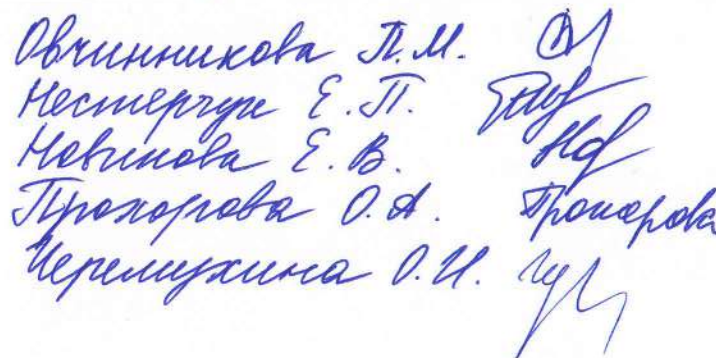 Овчинникова Л.М.
Нестерчук Е.П.
Новикова Е.В.
Прохорова О.А. Прохорова
Черемухина О.И.